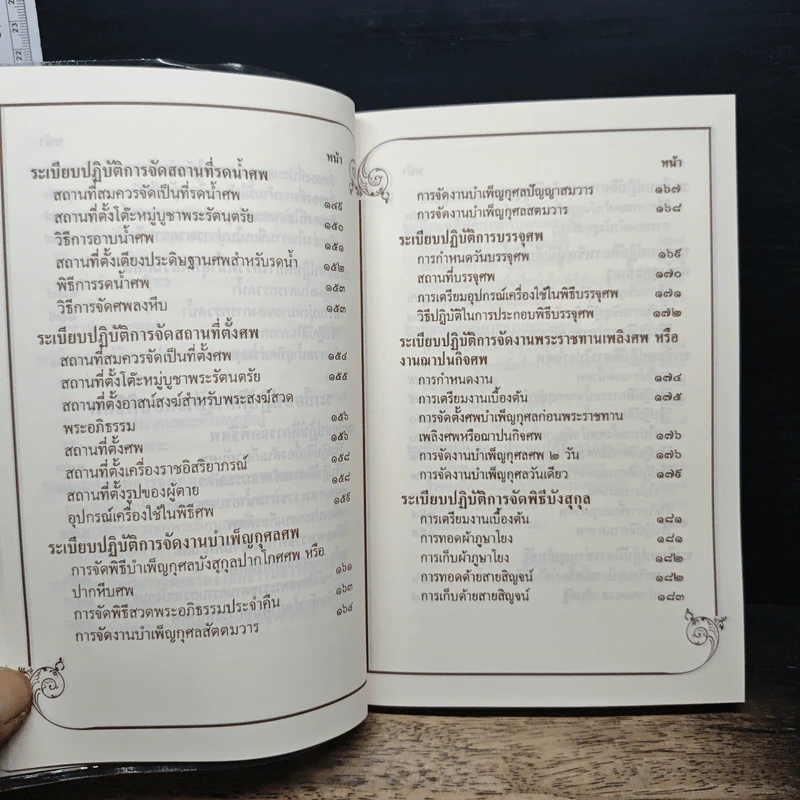 23
22
หน้า
ระเบียบปฏิบัติการจัดสถานที่รดน้ำศพ
สถานที่สมควรจัดเป็นที่รดน้ำศพ ๑๔๙
สถานที่ตั้งโต๊ะหมู่บูชาพระรัตนตรัย ๑๕๐
วิธีการอาบน้ำศพ ๑๕๑
สถานที่ตั้งเตียงประดิษฐานศพสำหรับรดน้ำ ๑๕๒
พิธีการรดน้ำศพ ๑๕๓
วิธีการจัดศพลงหีบ ๑๕๓
ระเบียบปฏิบัติการจัดสถานที่ตั้งศพ
สถานที่สมควรจัดเป็นที่ตั้งศพ ๑๕๔
สถานที่ตั้งโต๊ะหมู่บูชาพระรัตนตรัย ๑๕๕
สถานที่ตั้งอาสน์สงฆ์สำหรับพระสงฆ์สวด
พระอภิธรรม ๑๕๖
สถานที่ตั้งศพ ๑๕๖
สถานที่ตั้งเครื่องราชอิสริยาภรณ์ ๑๕๘
สถานที่ตั้งรูปของผู้ตาย ๑๕๘
อุปกรณ์เครื่องใช้ในพิธีศพ ๑๕๙
ระเบียบปฏิบัติการจัดงานบำเพ็ญกุศลศพ
การจัดพิธีบำเพ็ญกุศลบังสุกุลปากโกศศพ หรือ
ปากหีบศพ ๑๖๑
การจัดพิธีสวดพระอภิธรรมประจำคืน ๑๖๓
การจัดงานบำเพ็ญกุศลสัตตมวาร ๑๖๔
หน้า
การจัดงานบำเพ็ญกุศลปัญญาสมวาร ๑๖๗
การจัดงานบำเพ็ญกุศลสตมวาร ๑๖๘
ระเบียบปฏิบัติการบรรจุศพ
การกำหนดวันบรรจุศพ ๑๖๙
สถานที่บรรจุศพ ๑๗๐
การเตรียมอุปกรณ์เครื่องใช้ในพิธีบรรจุศพ ๑๗๑
วิธีปฏิบัติในการประกอบพิธีบรรจุศพ ๑๗๒
ระเบียบปฏิบัติการจัดงานพระราชทานเพลิงศพ หรือ
งานฌาปนกิจศพ
การกำหนดงาน ๑๗๔
การเตรียมงานเบื้องต้น ๑๗๕
การจัดตั้งศพบำเพ็ญกุศลก่อนพระราชทาน
เพลิงศพหรือฌาปนกิจศพ ๑๗๖
การจัดงานบำเพ็ญกุศลศพ ๒ วัน ๑๗๖
การจัดงานบำเพ็ญกุศลวันเดียว ๑๗๙
ระเบียบปฏิบัติการจัดพิธีบังสุกุล
การเตรียมงานเบื้องต้น ๑๘๑
การทอดผ้าภูษาโยง ๑๘๑
การเก็บผ้าภูษาโยง ๑๘๒
การทอดด้ายสายสิญจน์ ๑๘๒
การเก็บด้ายสายสิญจน์ ๑๘๓